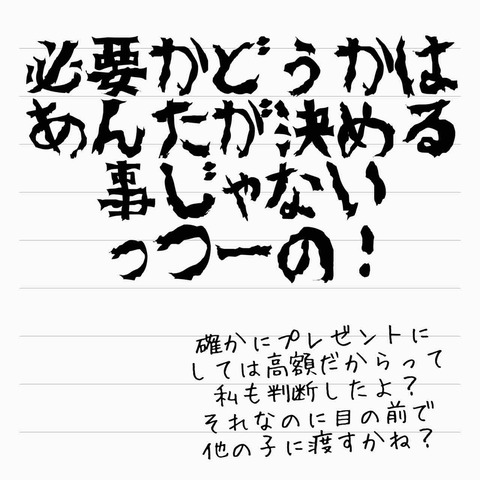 必要かどうかは
あんたが決める
事じゃない
っつーの！
確かにプレゼントに
しては高額だからって
私も判断したよ？
それなのに目の前で
他の子に渡すかね？